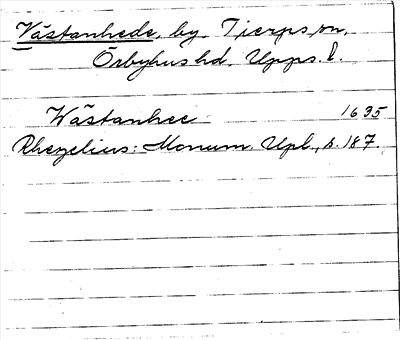 Västanhede, by. Tierps sn,
Örbyhus hd. Upps. l.
Wästanhee 1635
Rhezelius: Monum. Upl., s. 187.